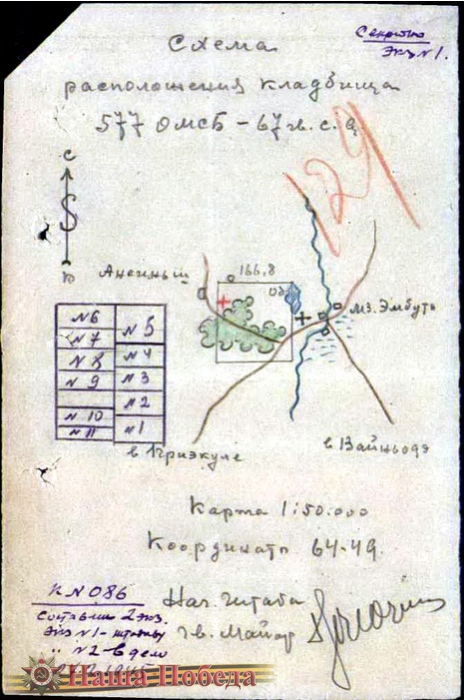 Секретно
Экз №1.
Схема
расположения кладбища
577 ОМСБ - 67 гв. с. д.
129
С
Ю
166,8
мз. Эмбуть
№6
№5
№7
№8
№4
№9
№3
№2
№10
№11
№1
в Приэкуле
в Вайньодэ
Карта 1:50.000
Координаты 64-49.
К №086
Составлен 2 экз.
Экз №1 -
" №2 - в дело
Нач. штаба
гв. майор
Наша Победа